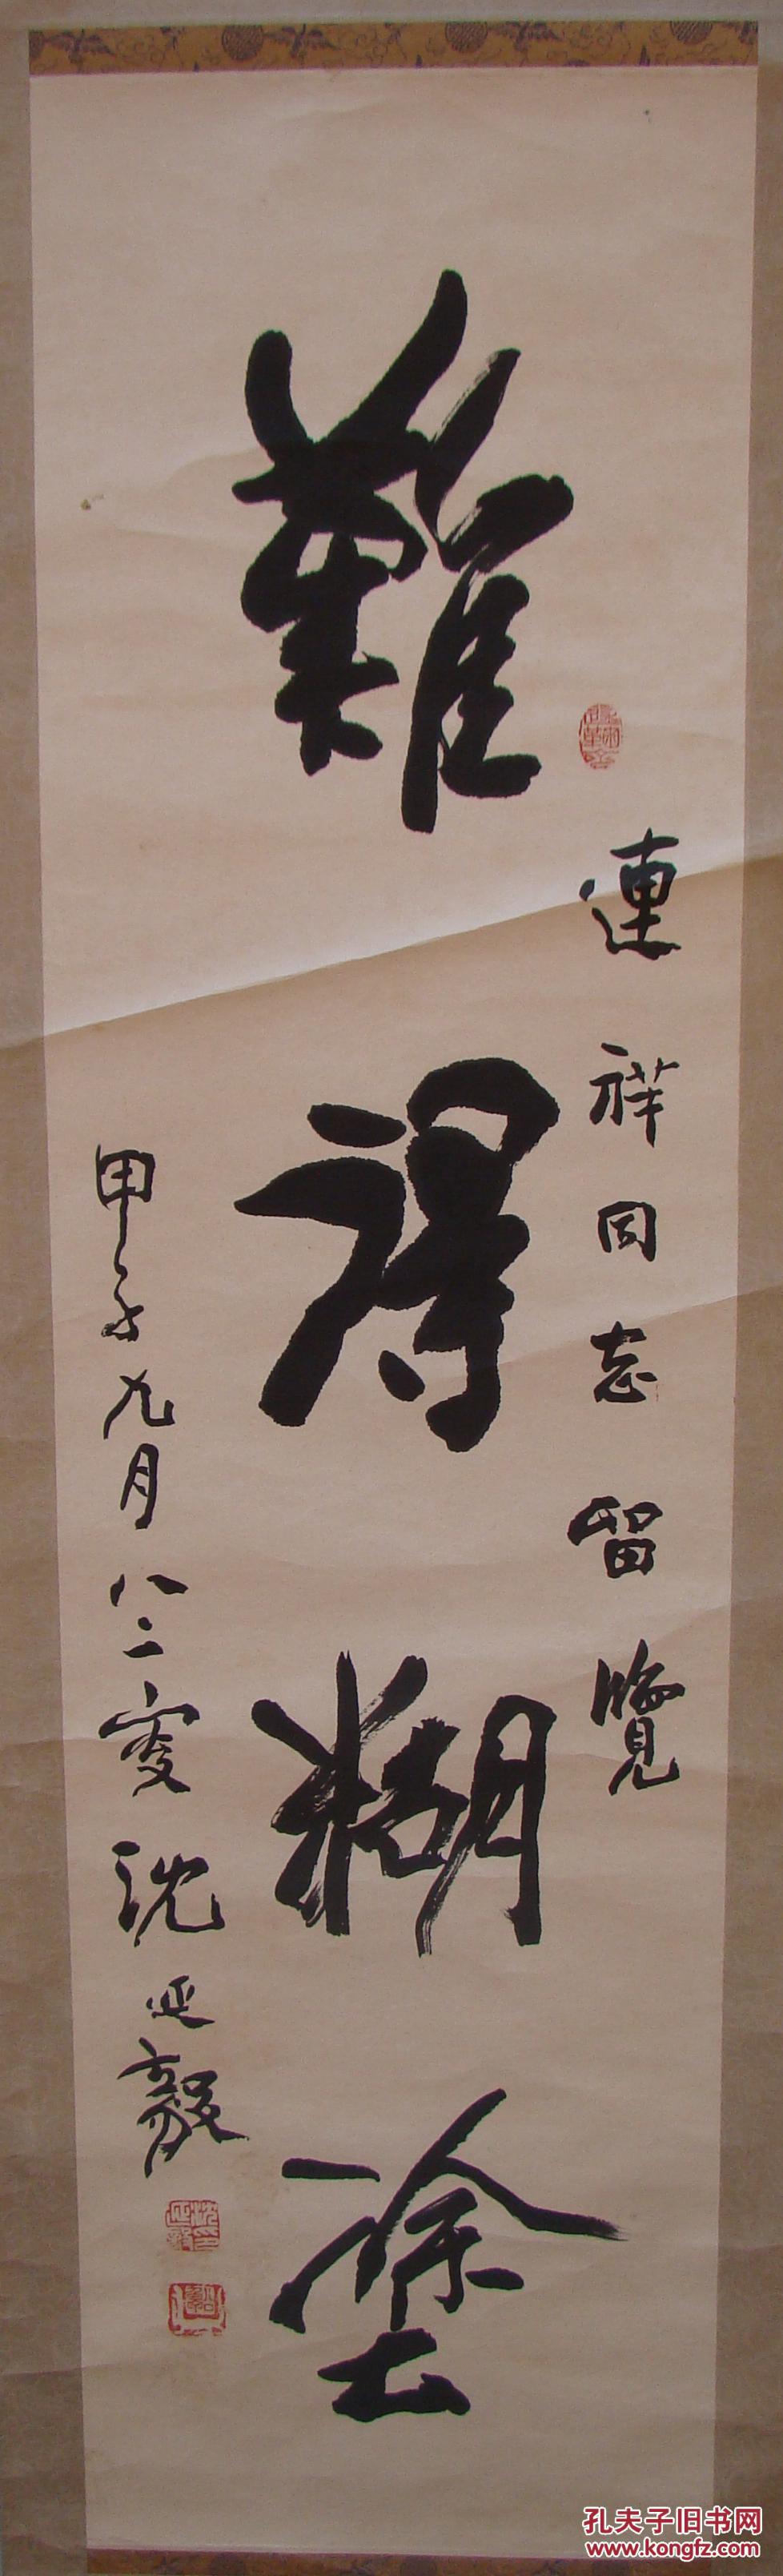 難得糊塗
連祥同志留覽
甲子九月八二叟沈延毅
孔夫子旧书网
www.kongfz.com